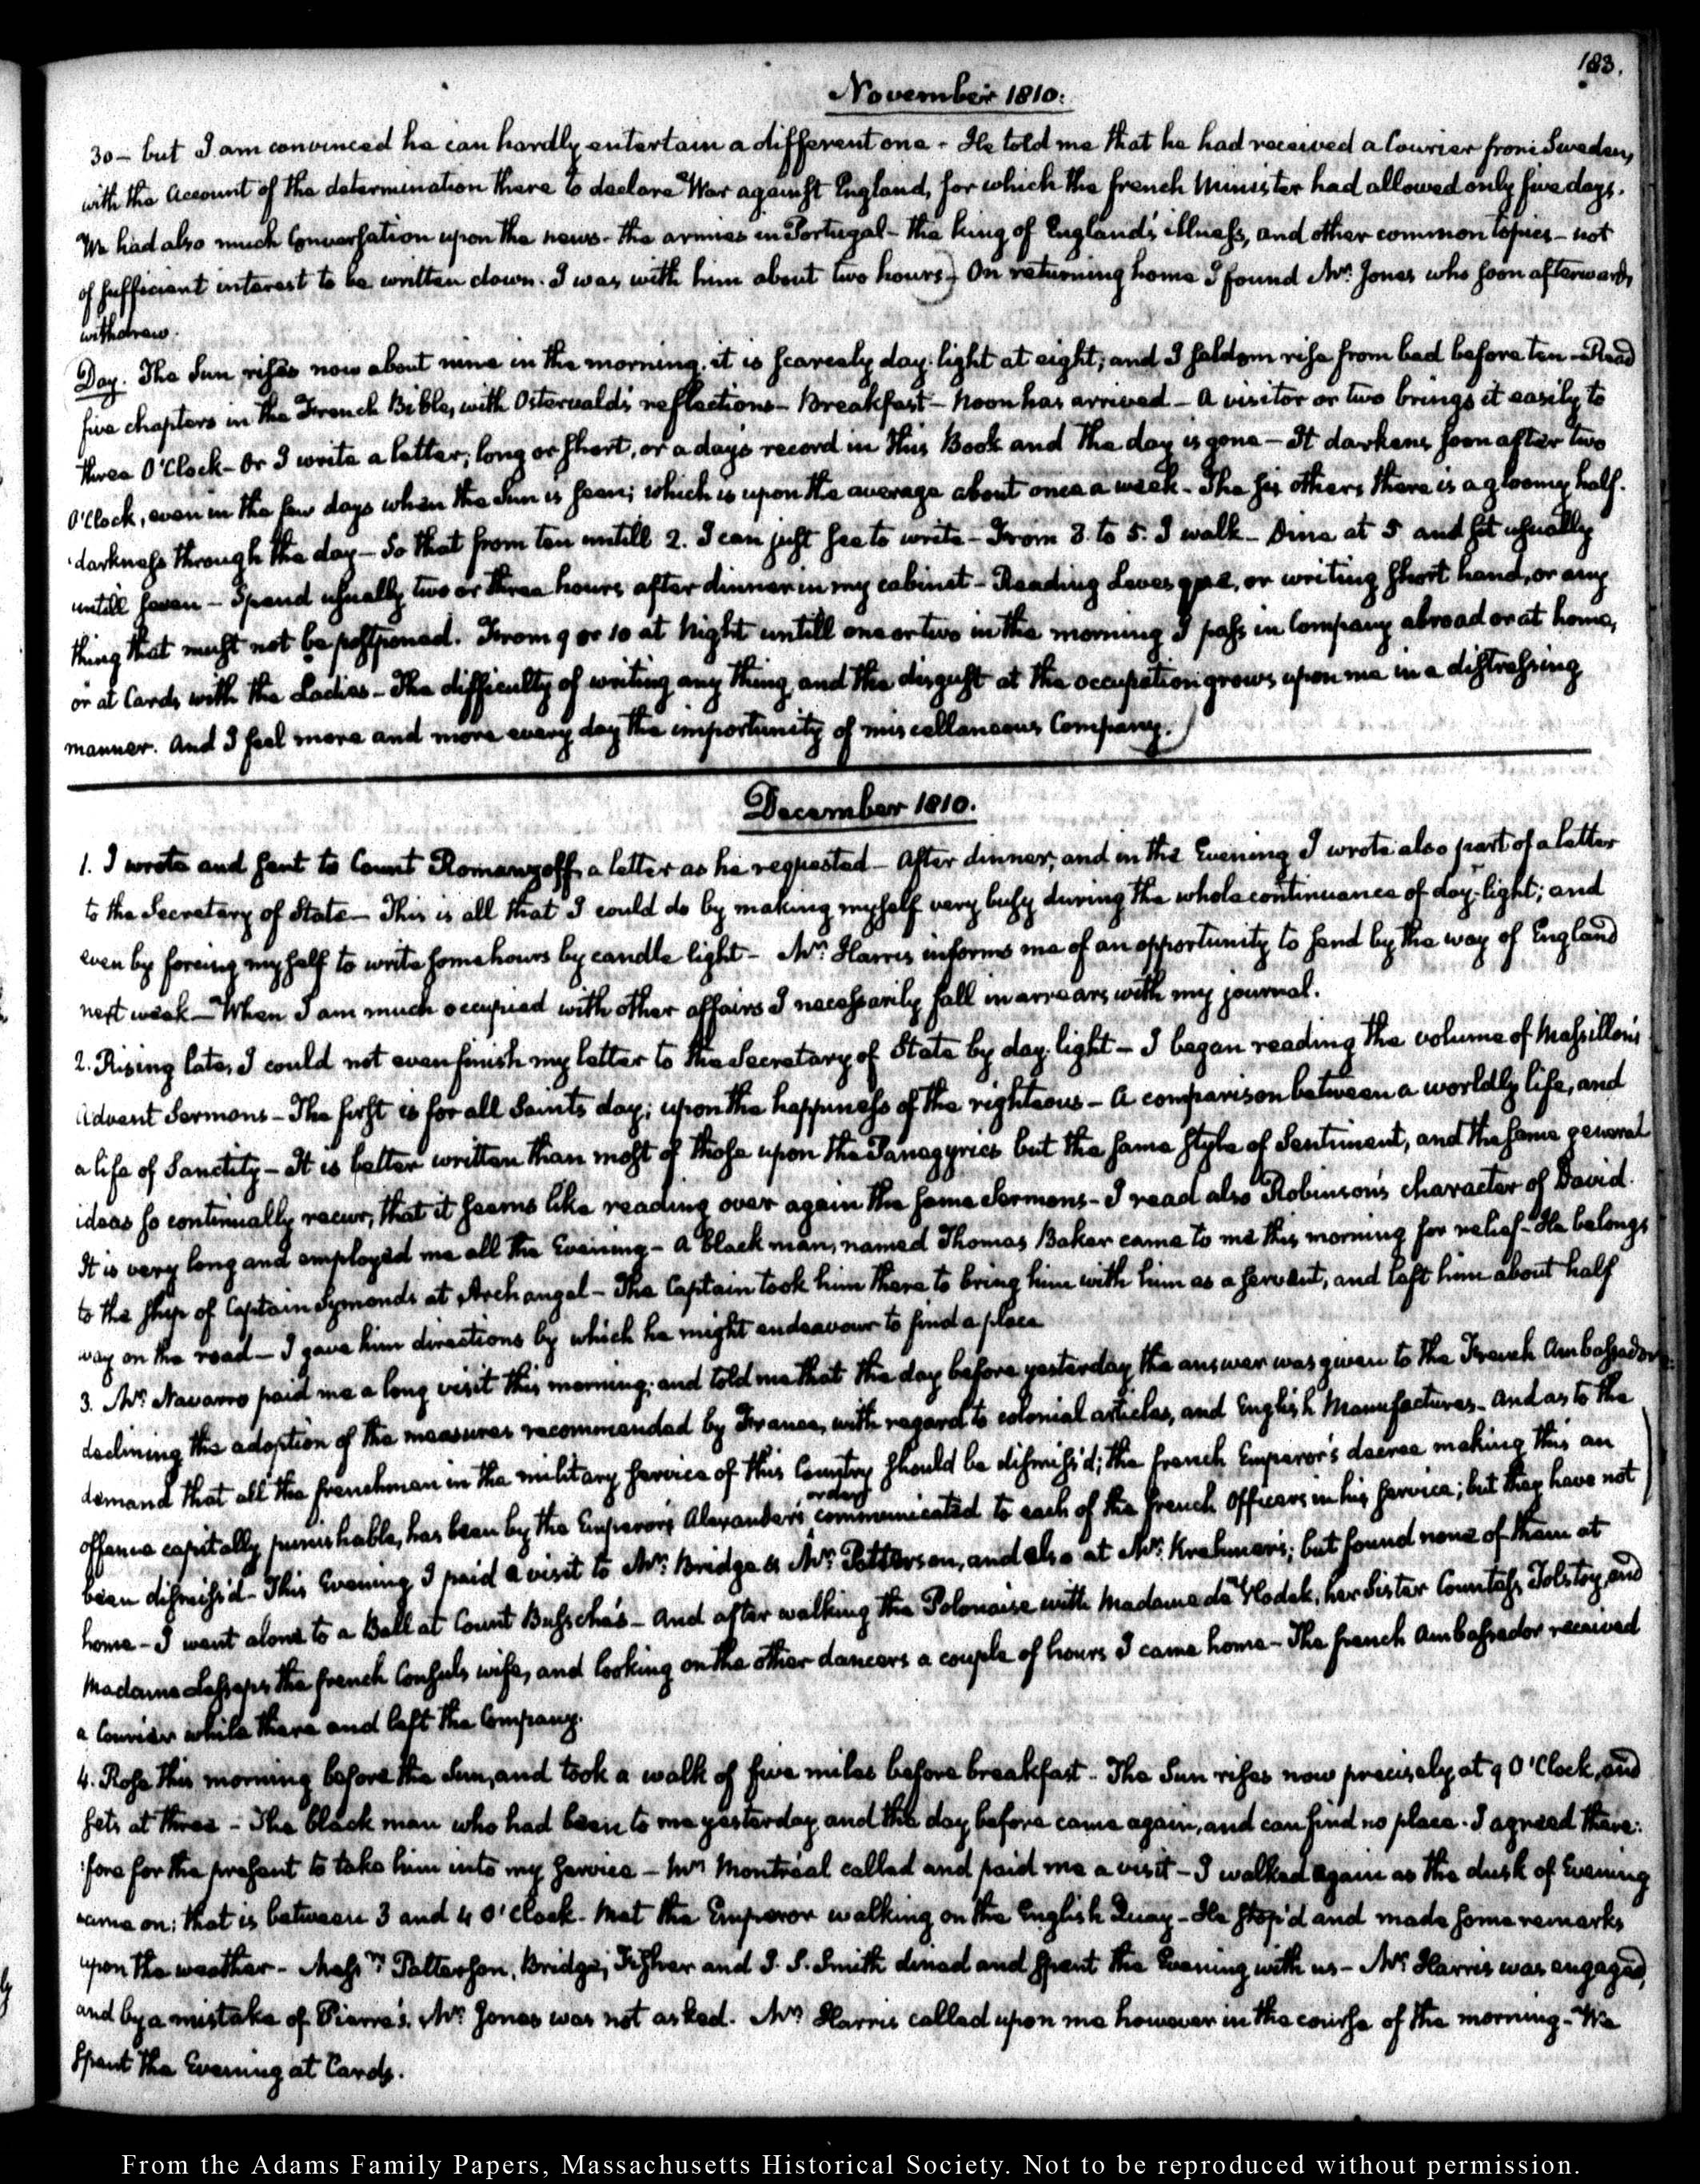 183.
November 1810.
30 - but I am convinced he can hardly entertain a different one - He told me that he had received a Courier from Sweden,
with the Account of the determination there to declare War against England, for which the french Minister had allowed only five days.
We had also much Conversation upon the news - the armies in Portugal - the king of England's illness, and other common topics - not
of sufficient interest to be written down. I was with him about two hours) - On returning home I found Mr. Jones who soon afterwards
withdrew.
Day. The Sun rises now about nine in the morning. it is scarcely day-light at eight; and I seldom rise from bed before ten - Read
five chapters in the French Bible, with Ostervald's reflections - Breakfast - Noon has arrived - A visitor or two brings it easily to
three O'Clock - Or I write a letter, long or short, or a day's record in this Book and the day is gone - It darkens soon after two
O'Clock, even in the few days when the Sun is seen; which is upon the average about once a week - The six others there is a gloomy half-
darkness through the day - So that from ten untill 2. I can just see to write - From 3. to 5. I walk - Dine at 5. and sit usually
untill seven - Spend usually two or three hours after dinner in my cabinet - Reading Levesque, or writing short hand, or any
thing that must not be postponed. From 9 or 10 at Night untill one or two in the morning I pass in Company abroad or at home,
or at Cards with the Ladies - The difficulty of writing any thing and the disgust at the occupation grows upon me in a distressing
manner. And I feel more and more every day the importunity of miscellaneous Company.)
December 1810.
1. I wrote and sent to Count Romanzoff, a letter as he requested - After dinner, and in the Evening I wrote also part of a letter
to the Secretary of State - This is all that I could do by making myself very busy during the whole continuance of day-light; and
even by forcing myself to write some hours by candle light - Mr. Harris informs me of an opportunity to send by the way of England
next week - When I am much occupied with other affairs I necessarily fall in arrears with my journal.
2. Rising late, I could not even finish my letter to the Secretary of State by day-light - I began reading the volume of Massillon's
Advent Sermons - The first is for all Saints day; upon the happiness of the righteous - A comparison between a worldly life, and
a life of Sanctity - It is better written than most of those upon the Panegyrics but the same style of Sentiment, and the same general
ideas so continually recur, that it seems like reading over again the same Sermons - I read also Robinson's character of David.
It is very long and employed me all the Evening - A black man, named Thomas Baker came to me this morning for relief - He belongs
to the ship of Captain Symonds at Archangel - The Captain took him there to bring him with him as a servant, and left him about half
way on the road - I gave him directions by which he might endeavour to find a place
3. Mr. Navarro paid me a long visit this morning; and told me that the day before yesterday the answer was given to the French Ambassador,
declining the adoption of the measures recommended by France, with regard to colonial articles, and English Manufactures - And as to the
demand that all the frenchmen in the military service of this Country should be dismiss'd; the french Emperor's decree making this an
offence capitally punishable, has been by the Emperor Alexander's order communicated to each of the french Officers in his service; but they have not
been dismiss'd - This Evening I paid a visit to Mr. Bridge & Mr. Patterson, and also at Mr. Krehmer's; but found none of them at
home - I went alone to a Ball at Count Bussche's - And after walking the Polonaise with Madame de Vlodek, her Sister Countess Tolstoy, and
Madame Lesseps the french Consul's wife, and looking on the other dancers a couple of hours I came home - The french Ambassador received
a Courier while there and left the Company.
4. Rose this morning before the Sun, and took a walk of five miles before breakfast - The Sun rises now precisely at 9 O'Clock, and
sets at three - The black man who had been to me yesterday and the day before came again, and can find no place. I agreed there-
fore for the present to take him into my service - Mr. Montréal called and paid me a visit - I walked again as the dusk of Evening
came on; that is between 3 and 4 O'Clock - Met the Emperor walking on the English Quay - He stop'd and made some remarks
upon the weather - Messrs. Patterson, Bridge, Fisher and J. S. Smith dined and spent the Evening with us - Mr. Harris was engaged,
and by a mistake of Pierre's. Mr. Jones was not asked. Mr. Harris called upon me however in the course of the morning - We
spent the Evening at Cards.
From the Adams Family Papers, Massachusetts Historical Society. Not to be reproduced without permission.